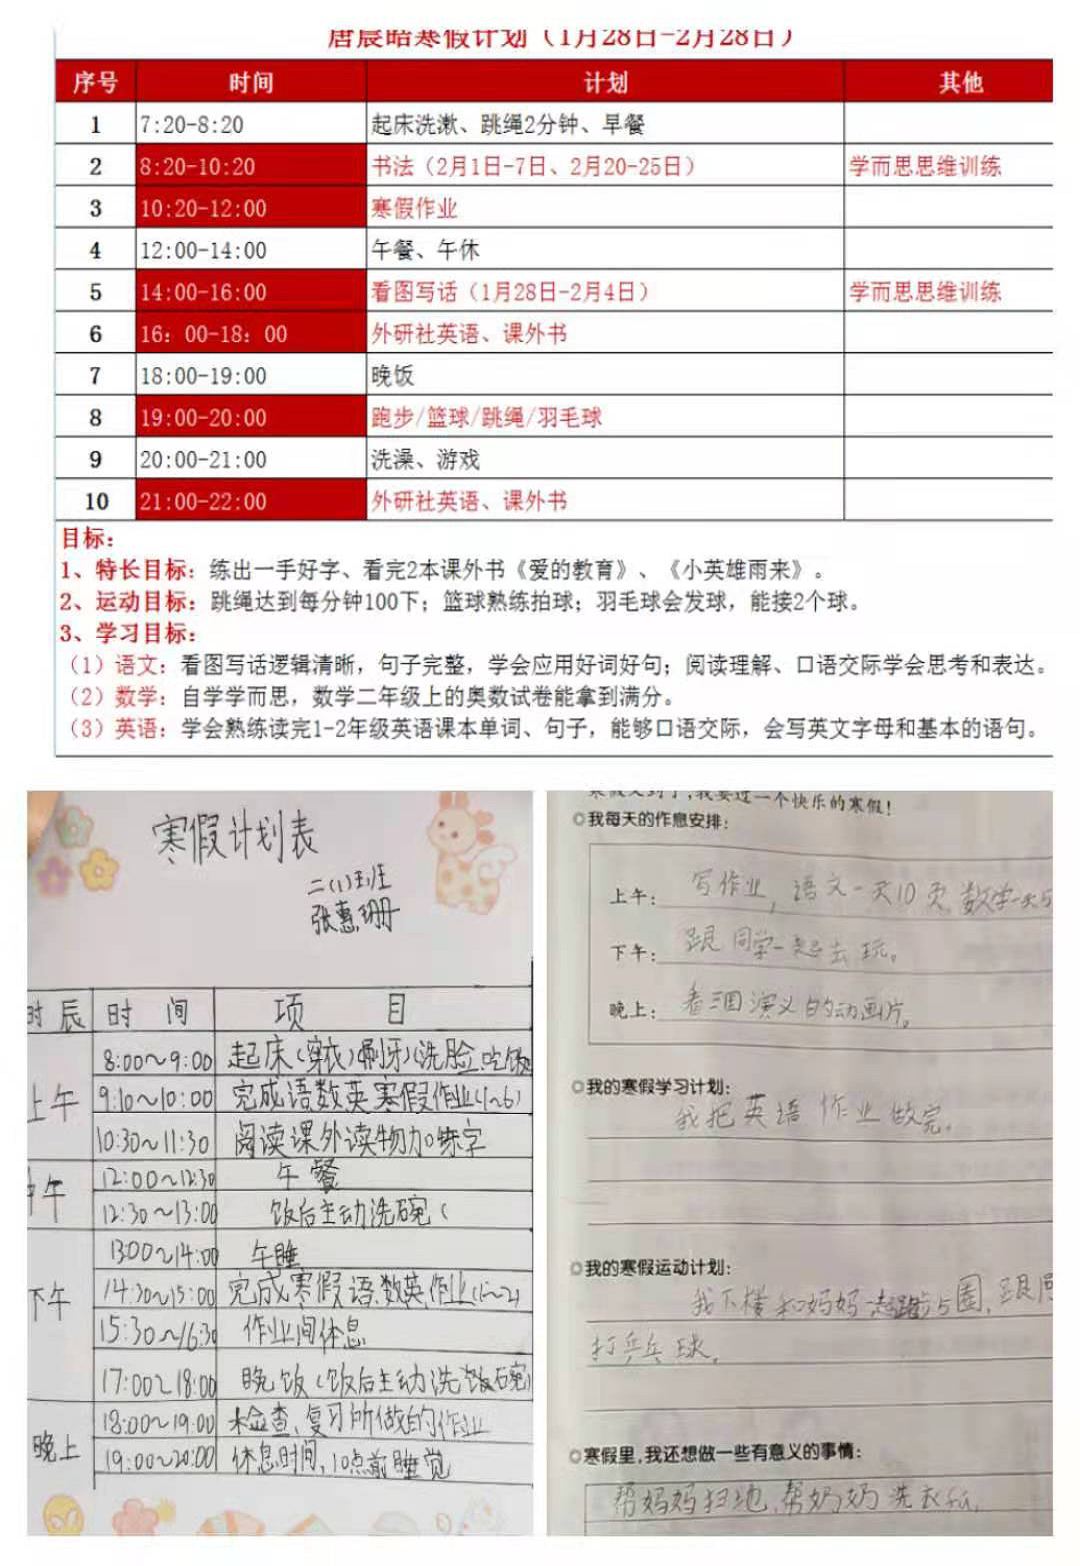 唐晨皓寒假计划（1月28日-2月28日）
序号 时间 计划 其他
1 7:20-8:20 起床洗漱、跳绳2分钟、早餐
2 8:20-10:20 书法（2月1日-7日、2月20-25日） 学而思思维训练
3 10:20-12:00 寒假作业
4 12:00-14:00 午餐、午休
5 14:00-16:00 看图写话（1月28日-2月4日） 学而思思维训练
6 16：00-18：00 外研社英语、课外书
7 18:00-19:00 晚饭
8 19:00-20:00 跑步/篮球/跳绳/羽毛球
9 20:00-21:00 洗澡、游戏
10 21:00-22:00 外研社英语、课外书
目标：
1、特长目标：练出一手好字、看完2本课外书《爱的教育》、《小英雄雨来》。
2、运动目标：跳绳达到每分钟100下；篮球熟练拍球；羽毛球会发球，能接2个球。
3、学习目标：
（1）语文：看图写话逻辑清晰，句子完整，学会应用好词好句；阅读理解、口语交际学会思考和表达。
（2）数学：自学学而思，数学二年级上的奥数试卷能拿到满分。
（3）英语：学会熟练读完1-2年级英语课本单词、句子，能够口语交际，会写英文字母和基本的语句。
寒假计划表
二(1)班
张惠珊
时辰 时间 项目
上午 8:00~9:00 起床(穿衣)刷牙)(洗脸.吃饭
9:10~10:00 完成语数英寒假作业(1~6)
10:30~11:30 阅读课外读物加练字
中午 12:00~12:30 午餐
12:30~13:00 饭后主动洗碗(
下午 13:00~14:00 午睡
14:30~15:00 完成寒假语.数英.作业(1~2)
15:30~16:30 作业间休息
17:00~18:00 晚饭(饭后主动洗饭碗)
晚上 18:00~19:00 检查、复习所做的作业
19:00~20:00 休息时间,10点前睡觉
寒假又到了,我要过一个快乐的寒假!
◎我每天的作息安排:
上午: 写作业,语文一天10页,数学一天5
下午: 跟同学一起去玩。
晚上: 看三国演义的动画片。
◎我的寒假学习计划:
我把英语作业做完。
◎我的寒假运动计划:
我下楼和妈妈一起跑步5圈,跟同
打乒乓球。
◎寒假里,我还想做一些有意义的事情:
帮妈妈扫地,帮奶奶洗衣服。